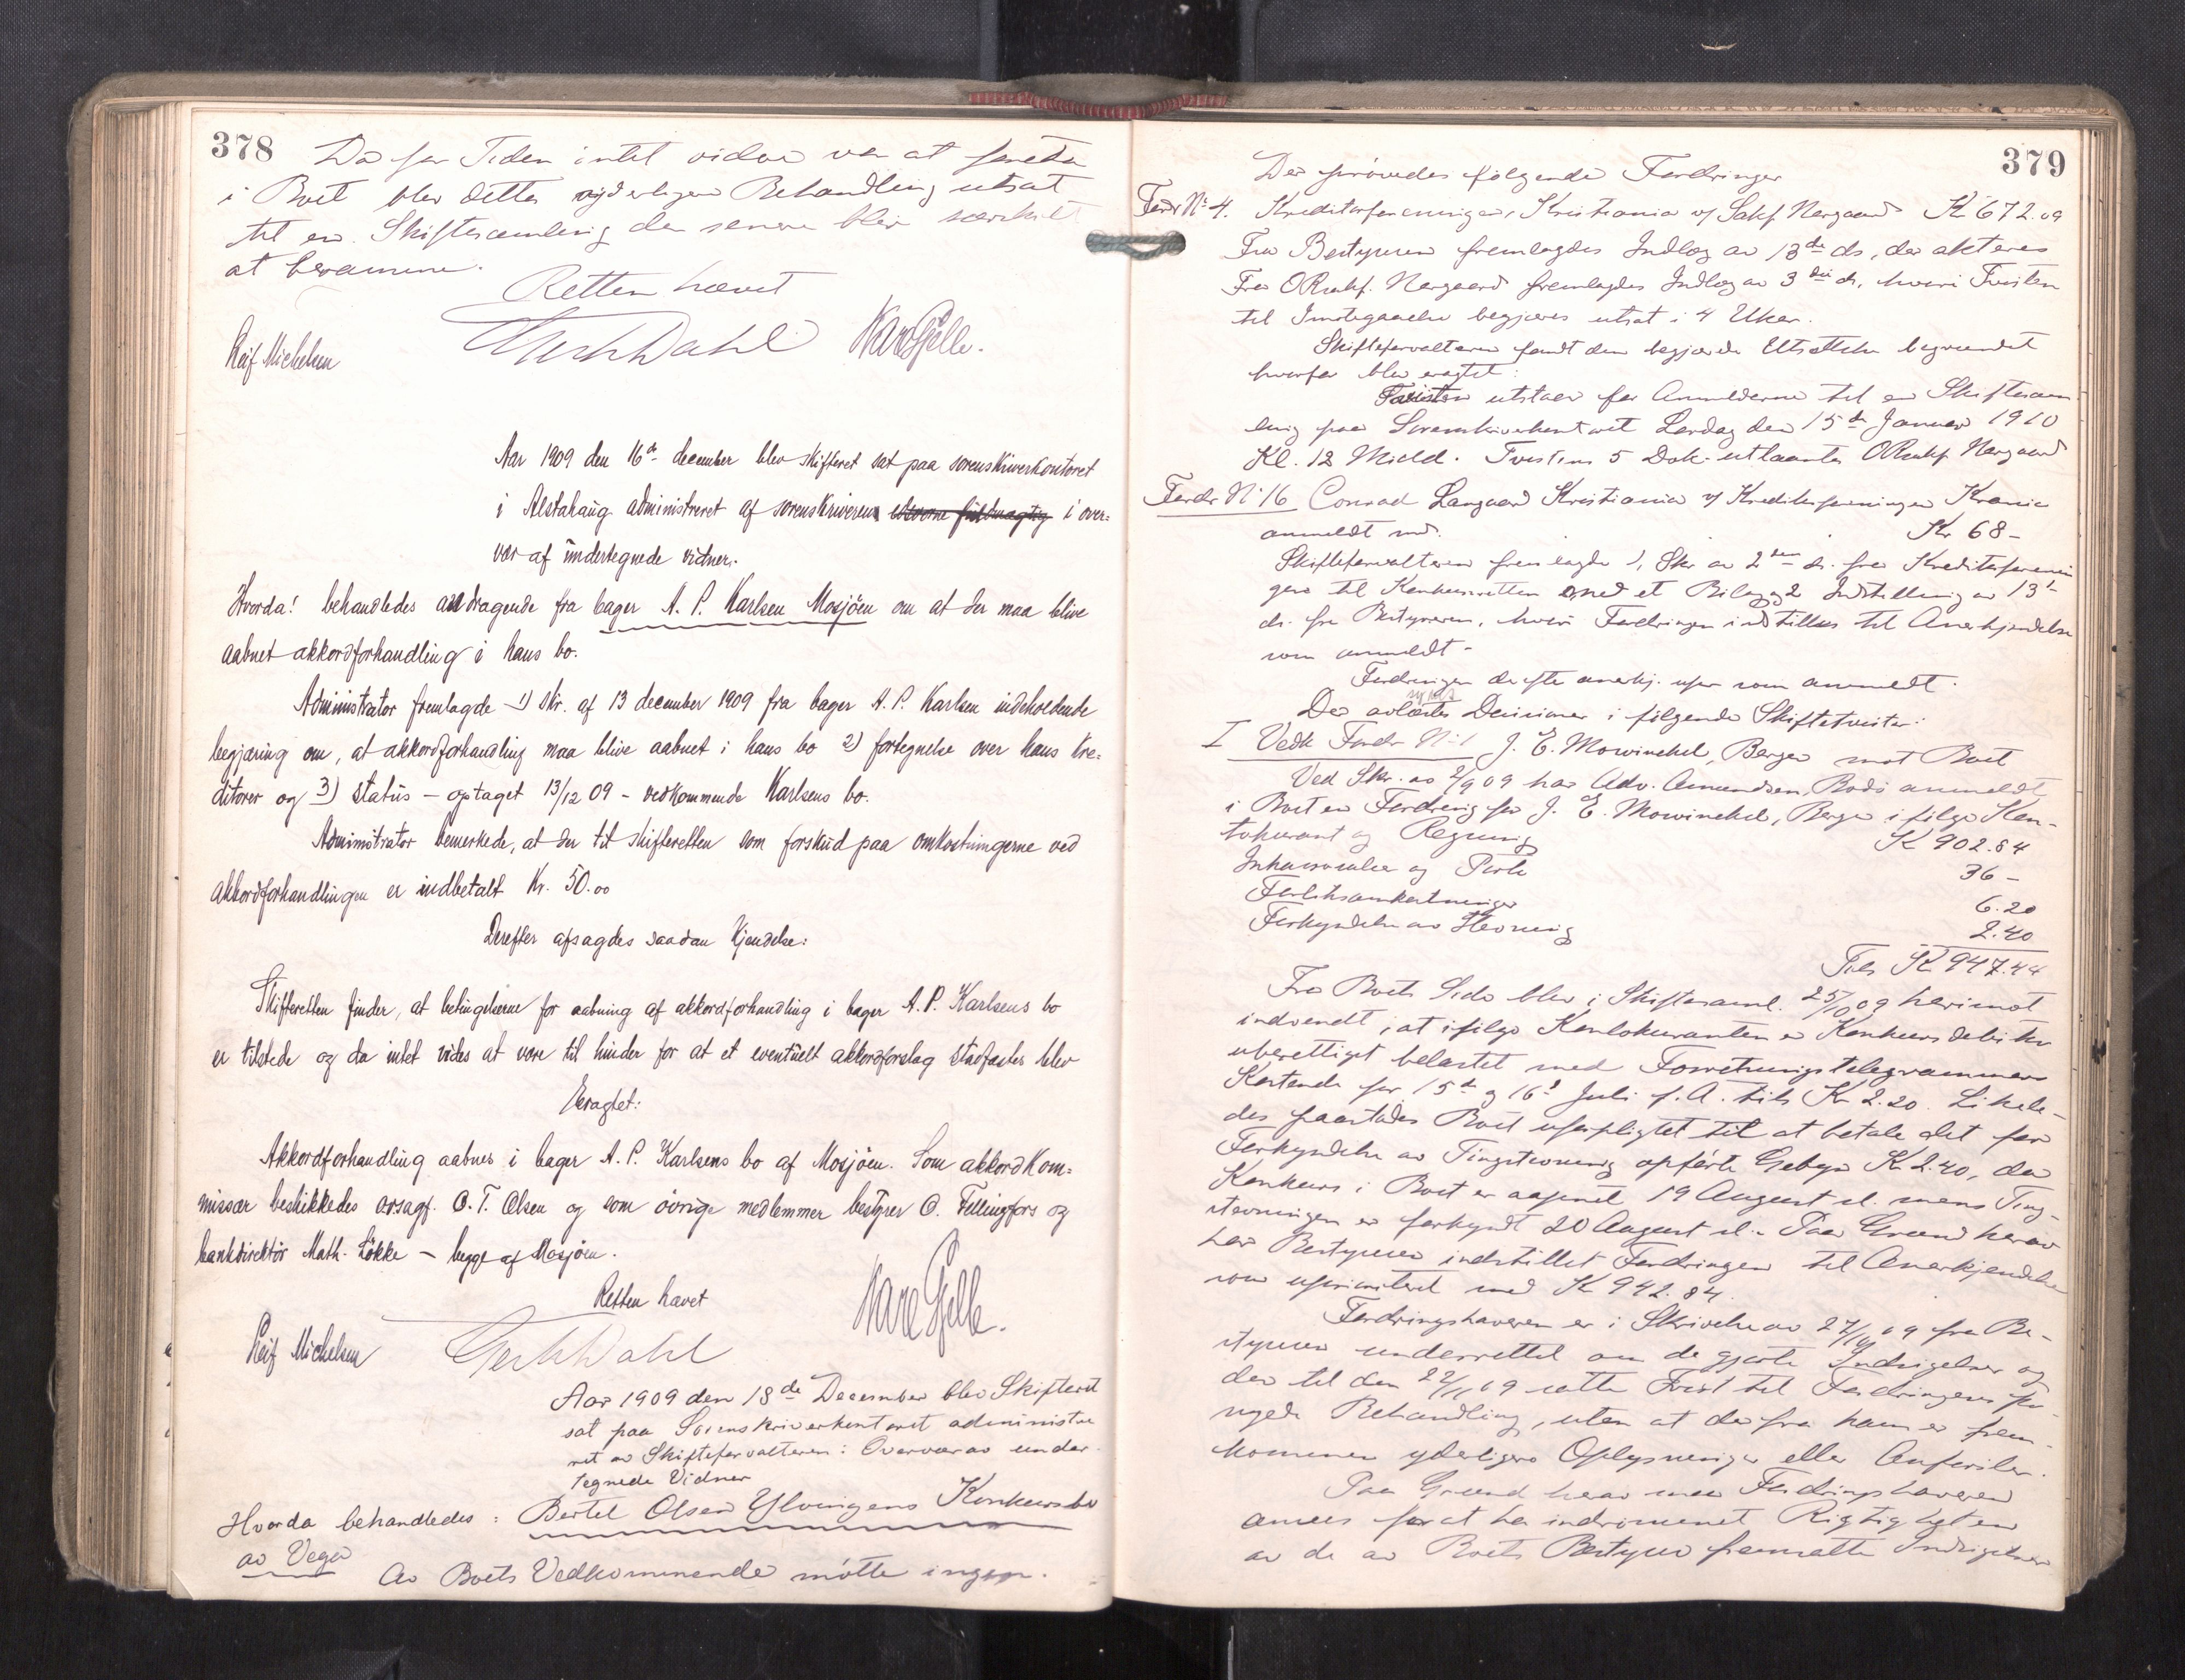 378
Da for Tiden intet videre var at foreta
i Boet blev dettes yderligere Behandling utsat
til en Skiftesamling der senere blir særskilt
at beramme.
Retten hævet
Leif Michelsen GerhDahl Kare Gjelle.
Aar 1909 den 16de december blev skifteret sat paa sorenskriverkontoret
i Alstahaug administreret af sorenskriveren edsvorne fuldmægtig i over=
vær af undertegnede vidner.
Hvorda! behandledes andragende fra bager A. P. Karlsen Mosjöen om at der maa blive
aabnet akkordforhandling i hans bo.
Administrator fremlagde 1) skr. af 13 december 1909 fra bager A. P. Karlsen indeholdende
begjæring om, at akkordforhandling maa blive aabnet i hans bo 2) fortegnelse over hans kre=
ditorer og 3) status - optaget 13/12 09 - vedkommende Karlsens bo.
Administrator bemerkede, at der til skifteretten som forskud paa omkostningerne ved
akkordforhandlingen er indbetalt Kr. 50.00
Derefter afsagdes saadan Kjendelse:
Skifteretten finder, at betingelserne for aabning af akkordforhandling i bager A. P. Karlsens bo
er tilstede og da intet vides at være til hinder for at et eventuelt akkordforslag stadfæstes blev
Eragtet:
Akkordforhandling aabnes i bager A. P. Karlsens bo af Mosjöen. Som akkordkom=
missær beskikkedes orsagf. O. T. Olsen og som övrige medlemmer bestyrer O. Fellingfors og
bankdirektör Math. Lökke - begge af Mosjöen.
Retten hævet
Leif Michelsen GerhDahl Kare Gjelle.
Aar 1909 den 18de December blev Skifteret
sat paa Sorenskriverkontoret administre
ret av Skifteforvalteren i Overvær av under
tegnede Vidner
Hvorda behandledes: Bertel Olsen Ylvingens Konkursbo
av Vega
Av Boets Vedkommende mötte ingen.
379
Der prövedes fölgende Fordringer
Fordr No 4. Kreditorforeningen, Kristiania v/ Sakf Nergaard Kr 672.09
Fra Bestyreren fremlagdes Indlæg av 13de ds, der akteres
Fra ORsakf. Nergaard fremlagdes Indlæg av 3die ds, hvori Tvisten
til Imötegaaelse begjæres utsat i 4 Uker.
Skifteforvalteren fandt den begjærede Utsættelse begrundet
hvorfor blev eragtet:
Tvisten utstaar for Anmelderne til en Skiftesam
ling paa Sorenskriverkontoret Lördag den 15de Januar 1910
Kl. 12 Midd. Tvistens 5 Dok. utlaantes ORsakf Nergaard
Fordr No 16 Conrad Langaard Kristiania v/ Kreditorforeningen Krania
anmeldt med. Kr 68-
Skifteforvalteren fremlagde 1, Skr av 2den ds. fra Kreditorforenin
gen til Konkursretten med et Bilag og 2 Indstilling av 13de
ds. fra Bestyreren, hvori Fordringen indstilles til Anerkjendelse
som anmeldt -
Fordringen derefter anerkj. upr som anmeldt.
Der avlæstes Decisioner i fölgende Skiftetvister:
I Vedk Fordr No 1 J. E. Mowinckel, Bergen mot Boet
Ved Skr. av 2/9 09 har Adv. Amundsen, Bodö anmeldt
i Boet en Fordring for J. E. Mowinckel, Bergen ifölge Kon-
tokurant og Regning Kr 902.84
Inkassosalær og Porto 36 -
Forliksomkostninger 6.20
Forkyndelse av Stevning 2.40
Tils Kr 947.44
Fra Boets Side blev i Skiftesaml. 25/10 09 herimot
indvendt, at ifölge Kontokuranten er Konkursdebitor
uberettiget belastet med Forretningstelegrammers
Kostende for 15de og 16de Juli f. A. tils Kr 2.20. Likele-
des paastodes Boet uforpligtet til at betale det for
Forkyndelse av Tingstevning opförte Gebyr Kr 2.40, da
Konkurs i Boet er aapnet 19 August sl. mens Ting-
stevningen er forkyndt 20 August sl. - Paa Grund herav
har Bestyreren indstillet Fordringen til Anerkjendelse
som uprioritert med Kr 942.84.
Fordringshaveren er i Skrivelse av 27/10 09 fra Be-
styreren underrettet om de gjorte Indsigelser og
den til den 22/11 09 satte Frist til Fordringens for-
nyede Behandling, uten at der fra ham er frem-
kommen yderligere Oplysninger eller Anförsler.
Paa Grund herav maa Fordringshaveren
ansees for at ha indrömmet Rigtigheten
av de av Boets Bestyrer fremsatte Indsigelser